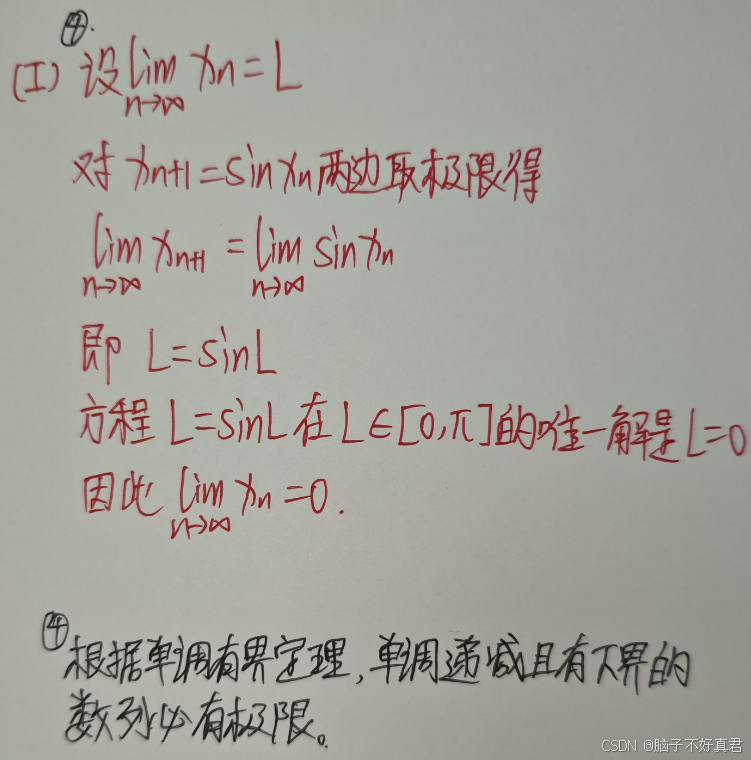 ④.
(I) 设 lim xn = L
n→∞
对 xn+1 = sin xn 两边取极限得
lim xn+1 = lim sin xn
n→∞ n→∞
即 L = sin L
方程 L = sin L 在 L∈[0,π] 的唯一解是 L=0
因此 lim xn = 0.
n→∞
④ 根据单调有界定理,单调递减且有下界的
数列必有极限。
CSDN @脑子不好真君